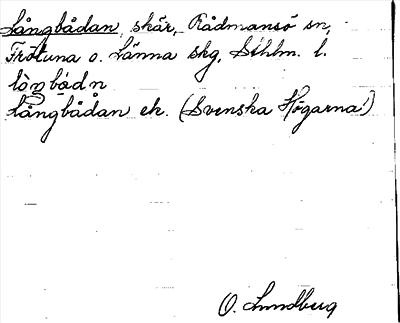 Långbådan, skär, Rådmansö sn,
Frötuna o. Länna skg, Sthlm. l.
lòŋbådn
långbådan ek. (Svenska Högarna!)
O. Lundberg